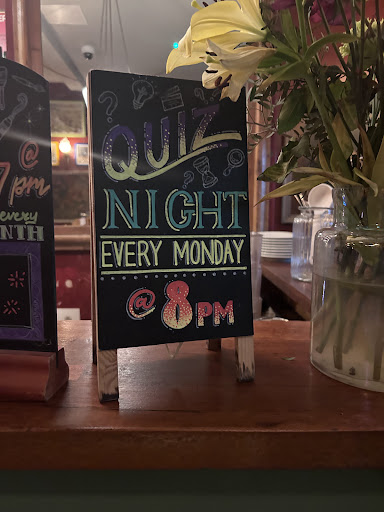 QUIZ
NIGHT
EVERY MONDAY
@ 8PM
@
7pm
every
NTH